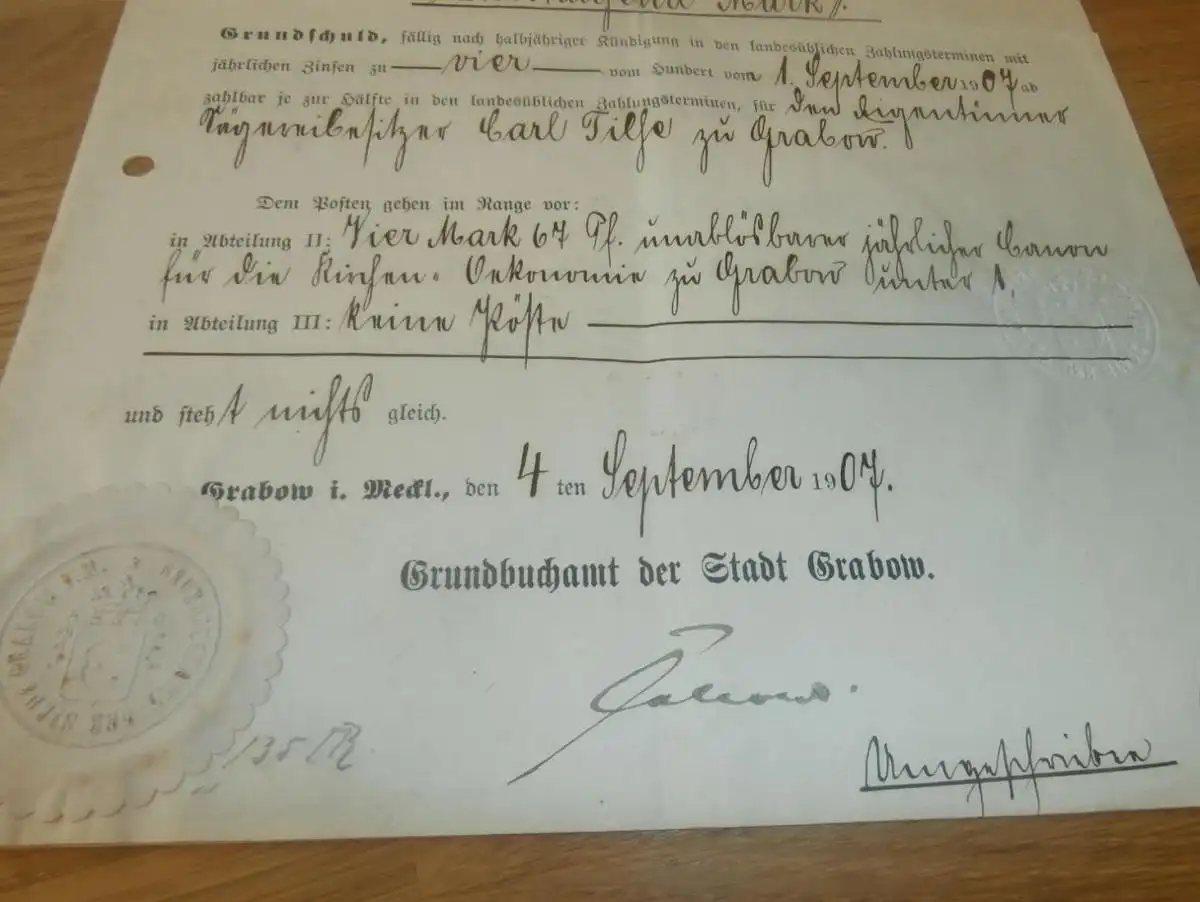 tausend Mark).
Grundschuld, fällig nach halbjähriger Kündigung in den landesüblichen Zahlungsterminen mit
jährlichen Zinsen zu vier vom Hundert vom 1. September 1907 ab
zahlbar je zur Hälfte in den landesüblichen Zahlungsterminen, für den Eigentümer
Sägereibesitzer Carl Tilse zu Grabow.
Dem Posten gehen im Range vor:
in Abteilung II: Vier Mark 67 Pf. unablösbarer jährlicher Canon
für die Kirchen-Oekonomie zu Grabow unter 1.
in Abteilung III: keine Pöste
und steht nichts gleich.
Grabow i. Meckl., den 4 ten September 1907.
Grundbuchamt der Stadt Grabow.
135
Umgeschrieben